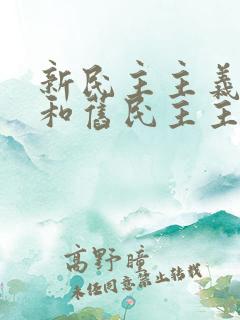 新民主主義
和舊民主主
高野瞳
未经同意禁止转载